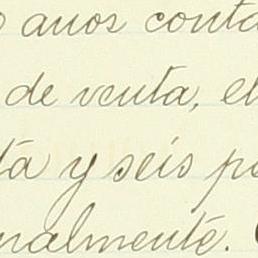 anos conta
de venta, el
ta y seis pe
nalmente.